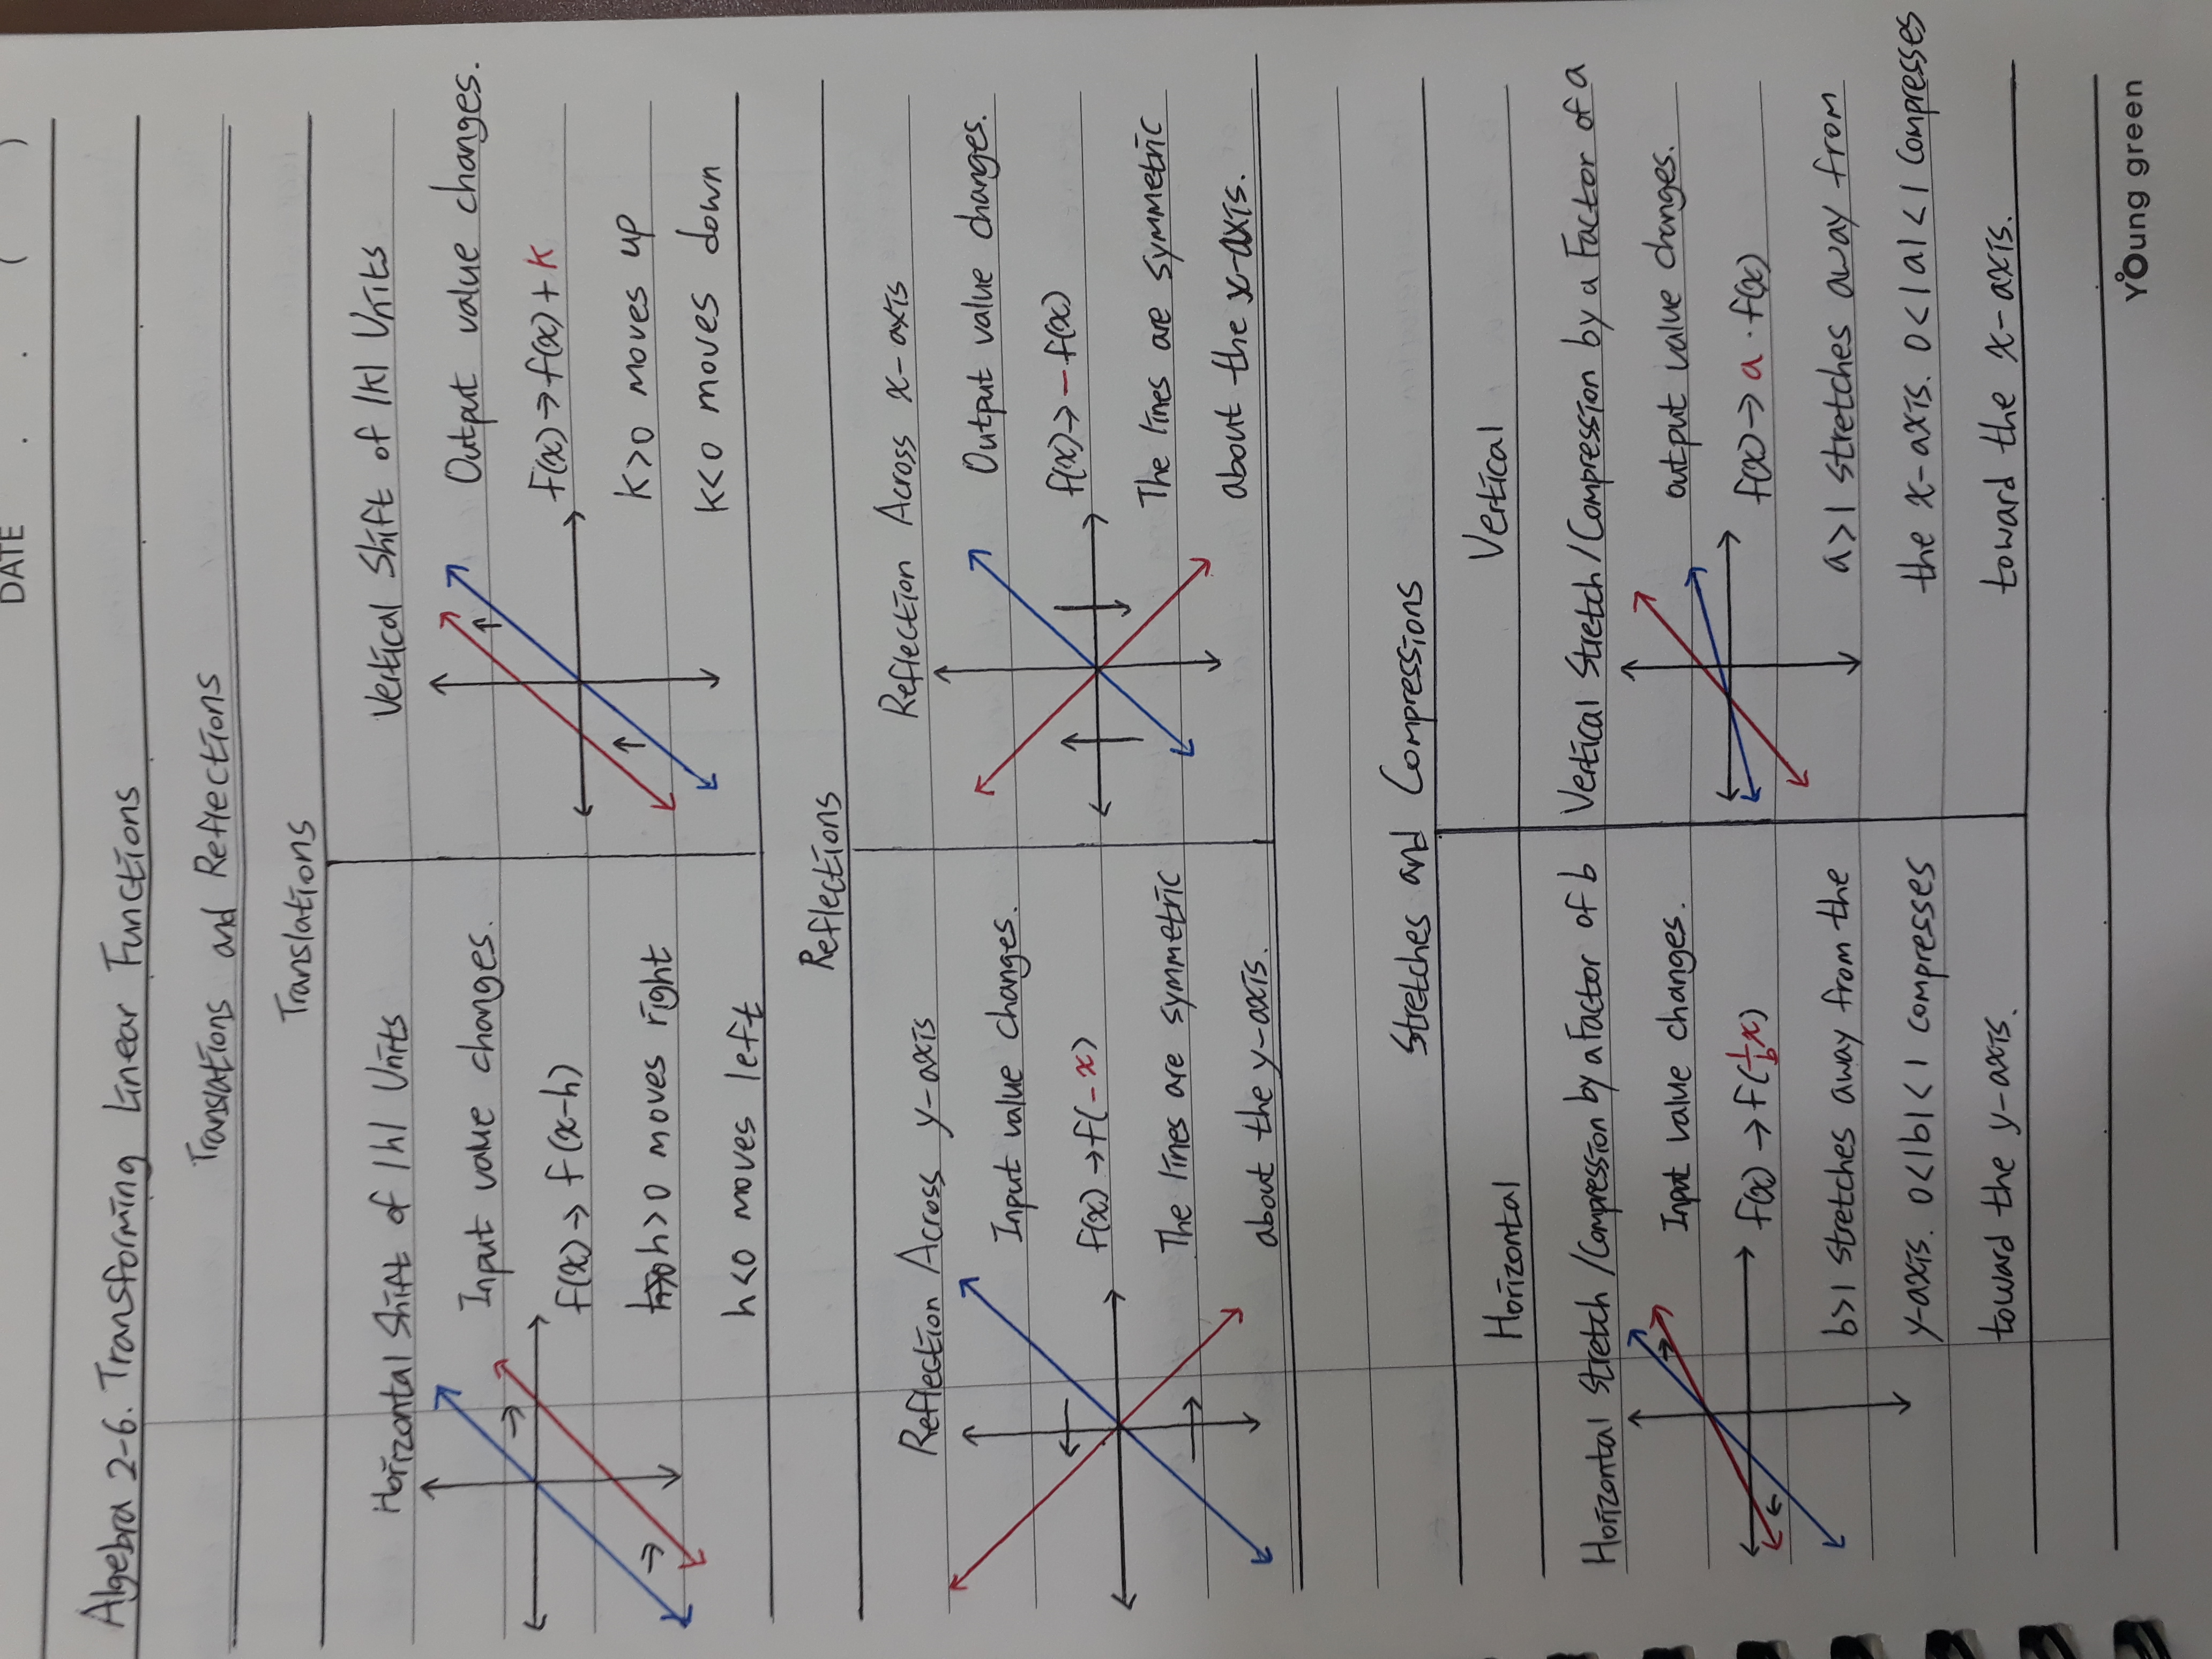 DATE . . ( )
Algebra 2-6. Transforming Linear Functions
Translations and Reflections
Translations
Horizontal Shift of |h| Units
Input value changes.
f(x) → f(x-h)
h>0 moves right
h<0 moves left
Vertical Shift of |k| Units
Output value changes.
f(x) → f(x) + k
k>0 moves up
k<0 moves down
Reflections
Reflection Across y-axis
Input value changes.
f(x) → f(-x)
The lines are symmetric
about the y-axis.
Reflection Across x-axis
Output value changes.
f(x) → -f(x)
The lines are symmetric
about the x-axis.
Stretches and Compressions
Horizontal
Horizontal Stretch/Compression by a Factor of b
Input value changes.
f(x) → f(1/b x)
b>1 stretches away from the
y-axis. 0<|b|<1 compresses
toward the y-axis.
Vertical
Vertical Stretch/Compression by a Factor of a
output value changes.
f(x) → a · f(x)
a>1 stretches away from
the x-axis. 0<|a|<1 compresses
toward the x-axis.
Young green